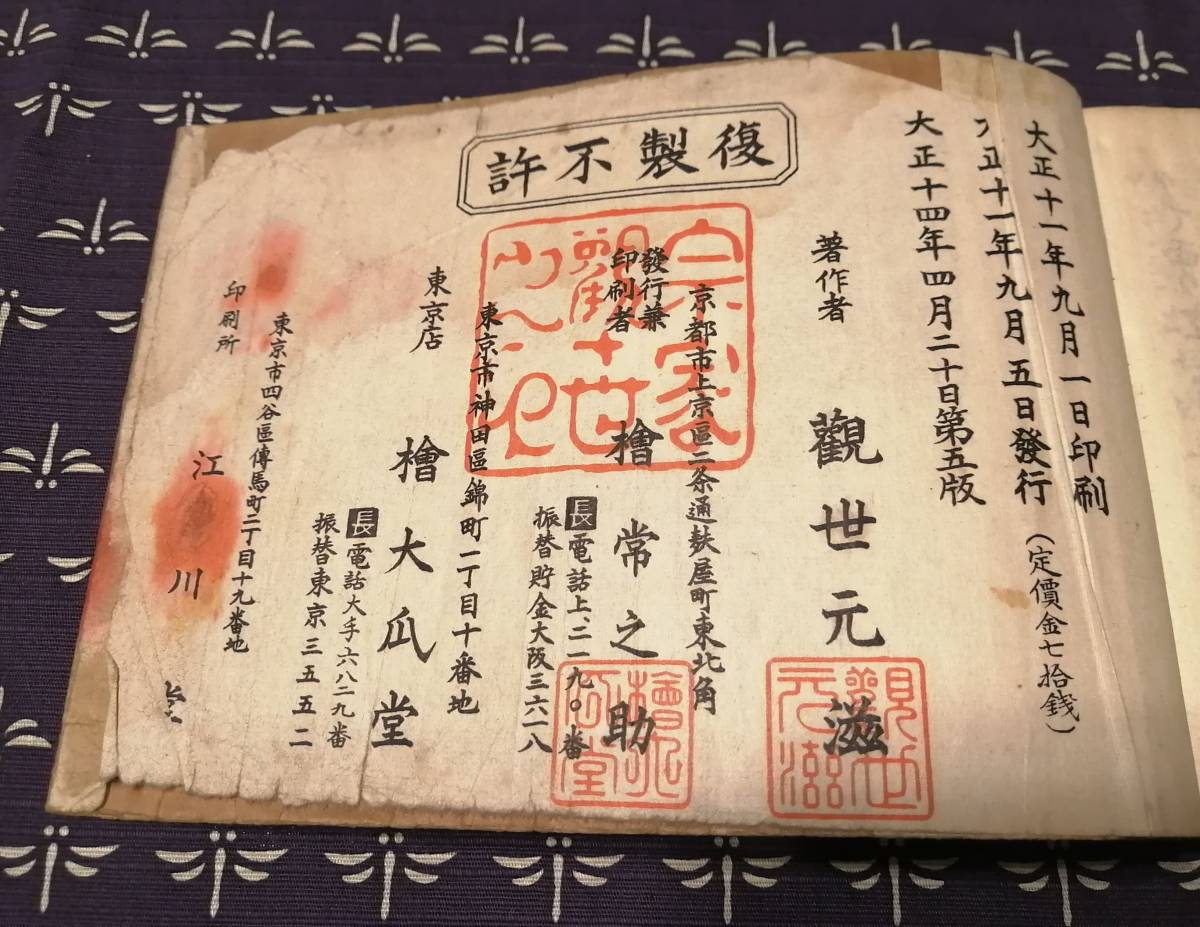 許不製復
大正十一年九月一日印刷
大正十一年九月五日發行
(定價金七拾錢)
大正十四年四月二十日第五版
著作者
觀世元滋
京都市上京區二条通麸屋町東北角
發行兼
印刷者
檜常之助
長電話上、二一九〇番
振替貯金大阪三六一八
東京市神田區錦町一丁目十番地
東京店
檜大瓜堂
長電話大手六八二九番
振替東京三五五二
東京市四谷區傳馬町二丁目十九番地
印刷所
江川
宗家
觀世
觀世元滋
檜瓜堂